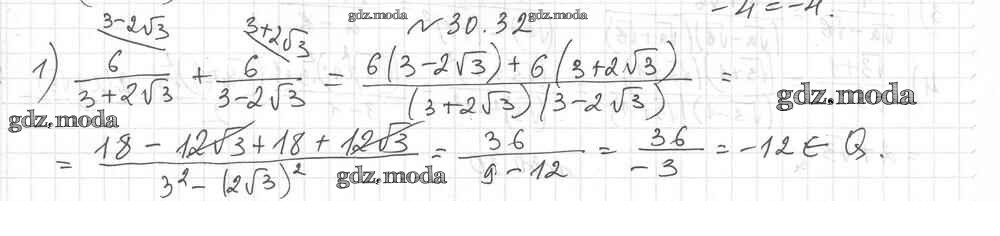 -4 = -4.
gdz.moda № 30.32 gdz.moda
3-2√3 3+2√3
1) 6/(3+2√3) + 6/(3-2√3) = (6(3-2√3)+6(3+2√3))/((3+2√3)(3-2√3)) =
gdz.moda
gdz.moda
= (18 - 12√3 + 18 + 12√3)/(3² - (2√3)²) = 36/(9-12) = 36/(-3) = -12 ∈ Q.
gdz.moda